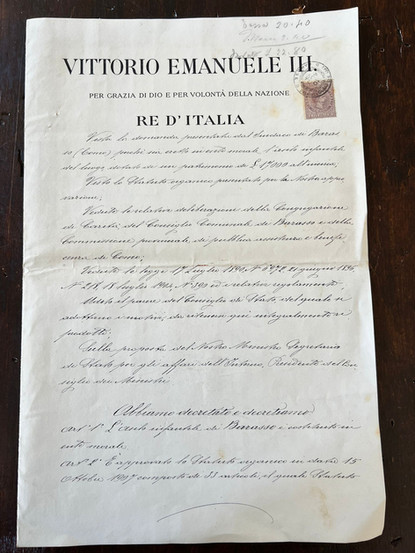 Tassa 20-40
2.40
22.80
VITTORIO EMANUELE III.
PER GRAZIA DI DIO E PER VOLONTÁ DELLA NAZIONE
RE D'ITALIA
Vista la domanda presentata dal Sindaco di Baras
so (Como) perché sia eretto in ente morale, l'asilo infantile
del luogo dotato di un patrimonio di £ 17.000 all'incirca;
Visto lo Statuto organico presentato per la Nostra appro
vazione;
Vedute le relative deliberazioni della Congregazione
di Carità, del Consiglio Comunale di Barasso e della
Commissione provinciale di pubblica assistenza e benefi
cenza di Como;
Vedute le leggi 17 Luglio 1890, N° 6972 21 giugno 1896,
N° 218, 18 Luglio 1904, N° 390 ed i relativi regolamenti;
Udito il parere del Consiglio di Stato, del quale si
adottano i motivi, da ritenersi qui integralmente ri
prodotti;
Sulla proposta del Nostro Ministro Segretario
di Stato per gli affari dell'Interno, Presidente del Con
siglio dei Ministri.
Abbiamo decretato e decretiamo
Art. 1° L'asilo infantile di Barasso è costituito in
ente morale.
Art. 2° È approvato lo Statuto organico in data 15
Ottobre 1907 composto di 33 articoli, il quale Statuto